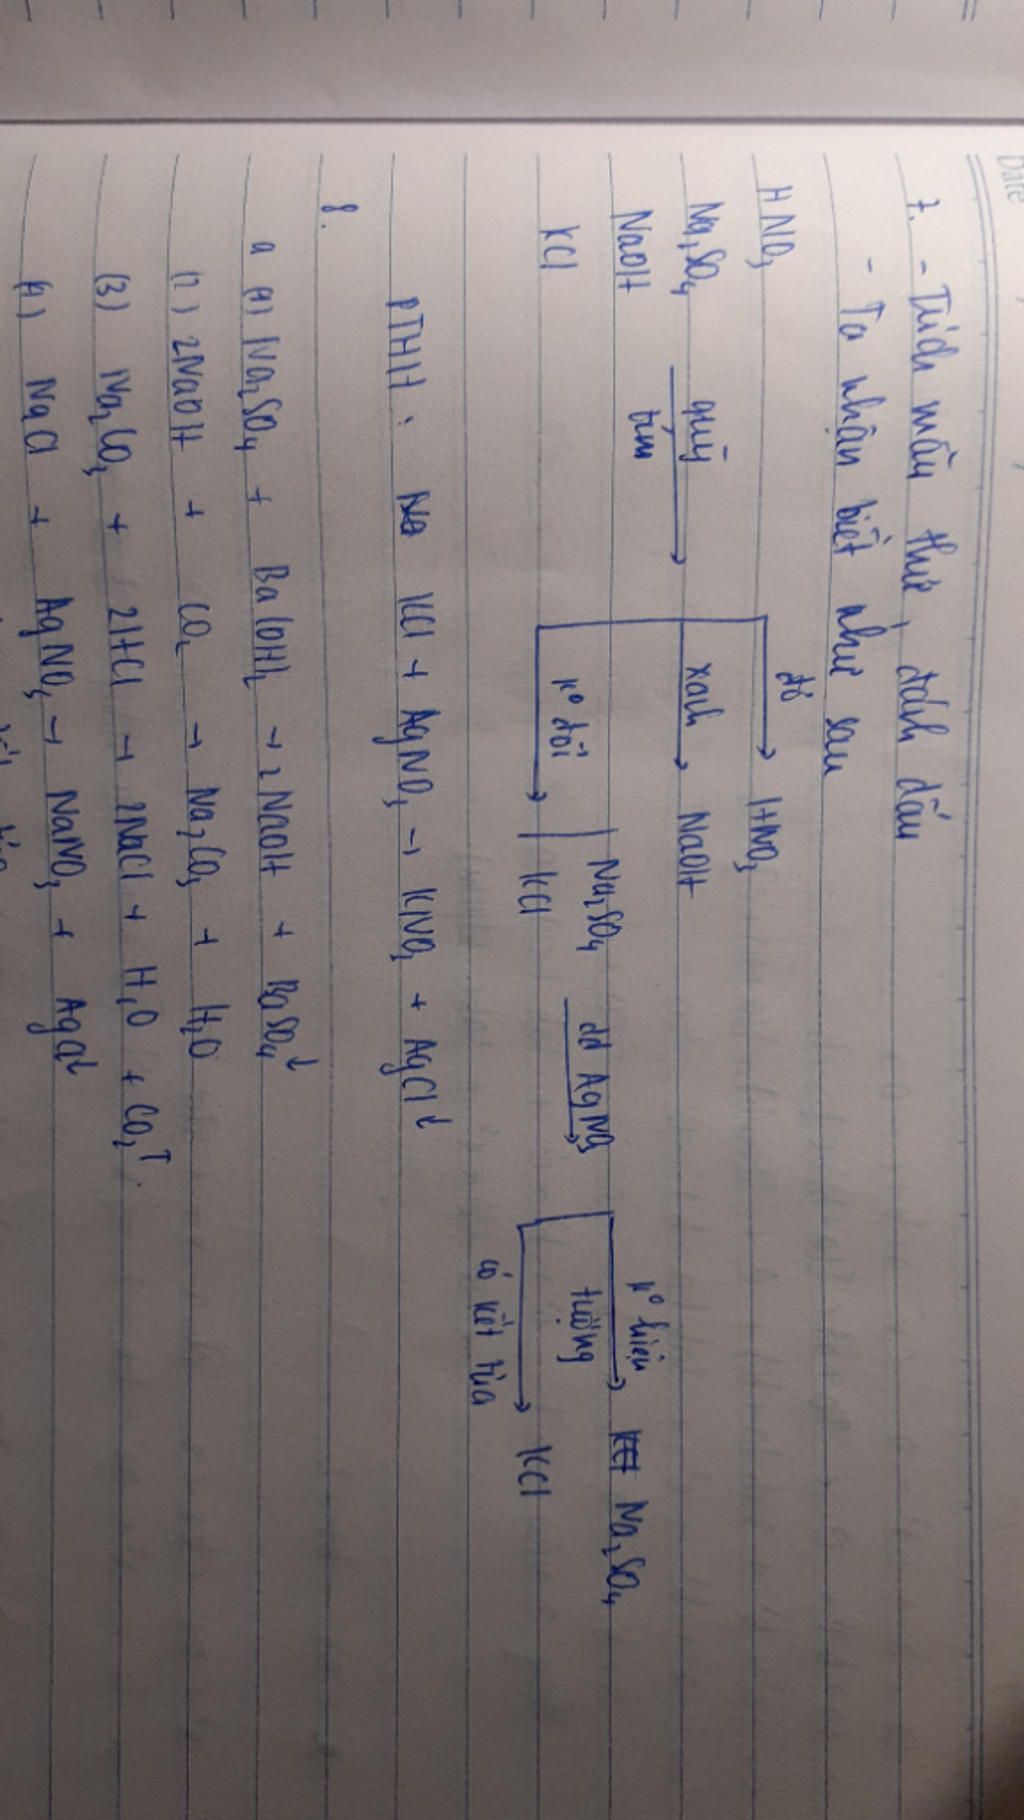 Date
7. - Trích mẫu thử, đánh dấu
- Ta nhận biết như sau
HNO3
Na2SO4
NaOH
KCl
quỳ
tím
đỏ
HNO3
xanh
NaOH
k° đổi
Na2SO4
KCl
dd AgNO3
k° hiện
tượng
Na2SO4
có kết tủa
KCl
PTHH: KCl + AgNO3 → KNO3 + AgCl↓
8.
a (1) Na2SO4 + Ba(OH)2 → 2NaOH + BaSO4↓
(2) 2NaOH + CO2 → Na2CO3 + H2O
(3) Na2CO3 + 2HCl → 2NaCl + H2O + CO2↑.
(4) NaCl + AgNO3 → NaNO3 + AgCl↓